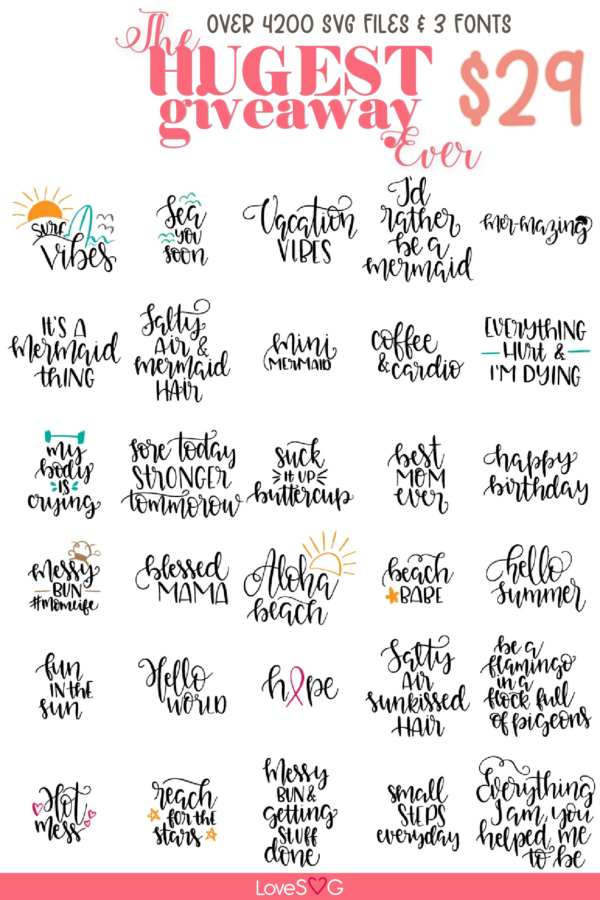 OVER 4200 SVG FILES & 3 FONTS
The
HUGEST
giveaway
Ever
$29
SURF
vibes
Sea
you
soon
Vacation
VIBES
I'd
rather
be a
mermaid
mer-mazing
IT'S A
mermaid
thING
Salty
AIR &
mermaid
HAIR
mini
MERMAID
coffee
& cardio
EVERYthING
HURt &
I'M DYING
my
body
IS
crying
sore today
STRONGER
tommorow
suck
It UP
buttercup
best
MOM
ever
happy
birthday
messy
BUN
#momlife
blessed
MAMA
Aloha
beach
beach
BABE
hello
summer
fun
IN tHE
sun
Hello
WORLD
hope
Salty
AIR
sunkissed
HAIR
be a
flamingo
in a
flock full
of pigeons
Hot
mess
reach
for the
stars
Messy
BUN &
getting
Stuff
done
small
STEPS
everyday
Everything
I am, you
helped me
to be
LoveSVG